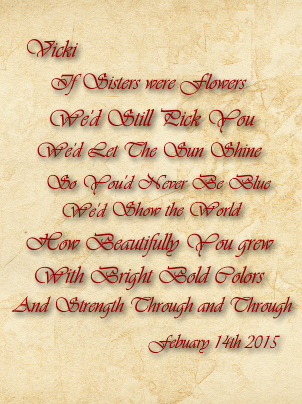 Vicki
If Sisters were Flowers
We'd Still Pick You
We'd Let The Sun Shine
So You'd Never Be Blue
We'd Show the World
How Beautifully You grew
With Bright Bold Colors
And Strength Through and Through
Febuary 14th 2015